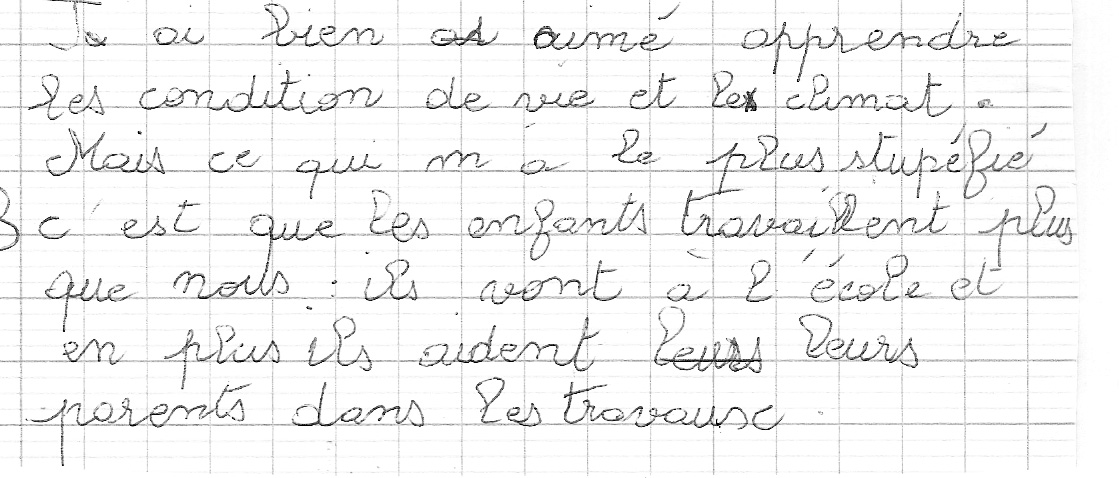 Je ai bien aimé apprendre
les condition de vie et le climat.
Mais ce qui m'a le plus stupéfié
c'est que les enfants travaillent plus
que nous : ils vont à l'école et
en plus ils aident leurs
parents dans les travaux.